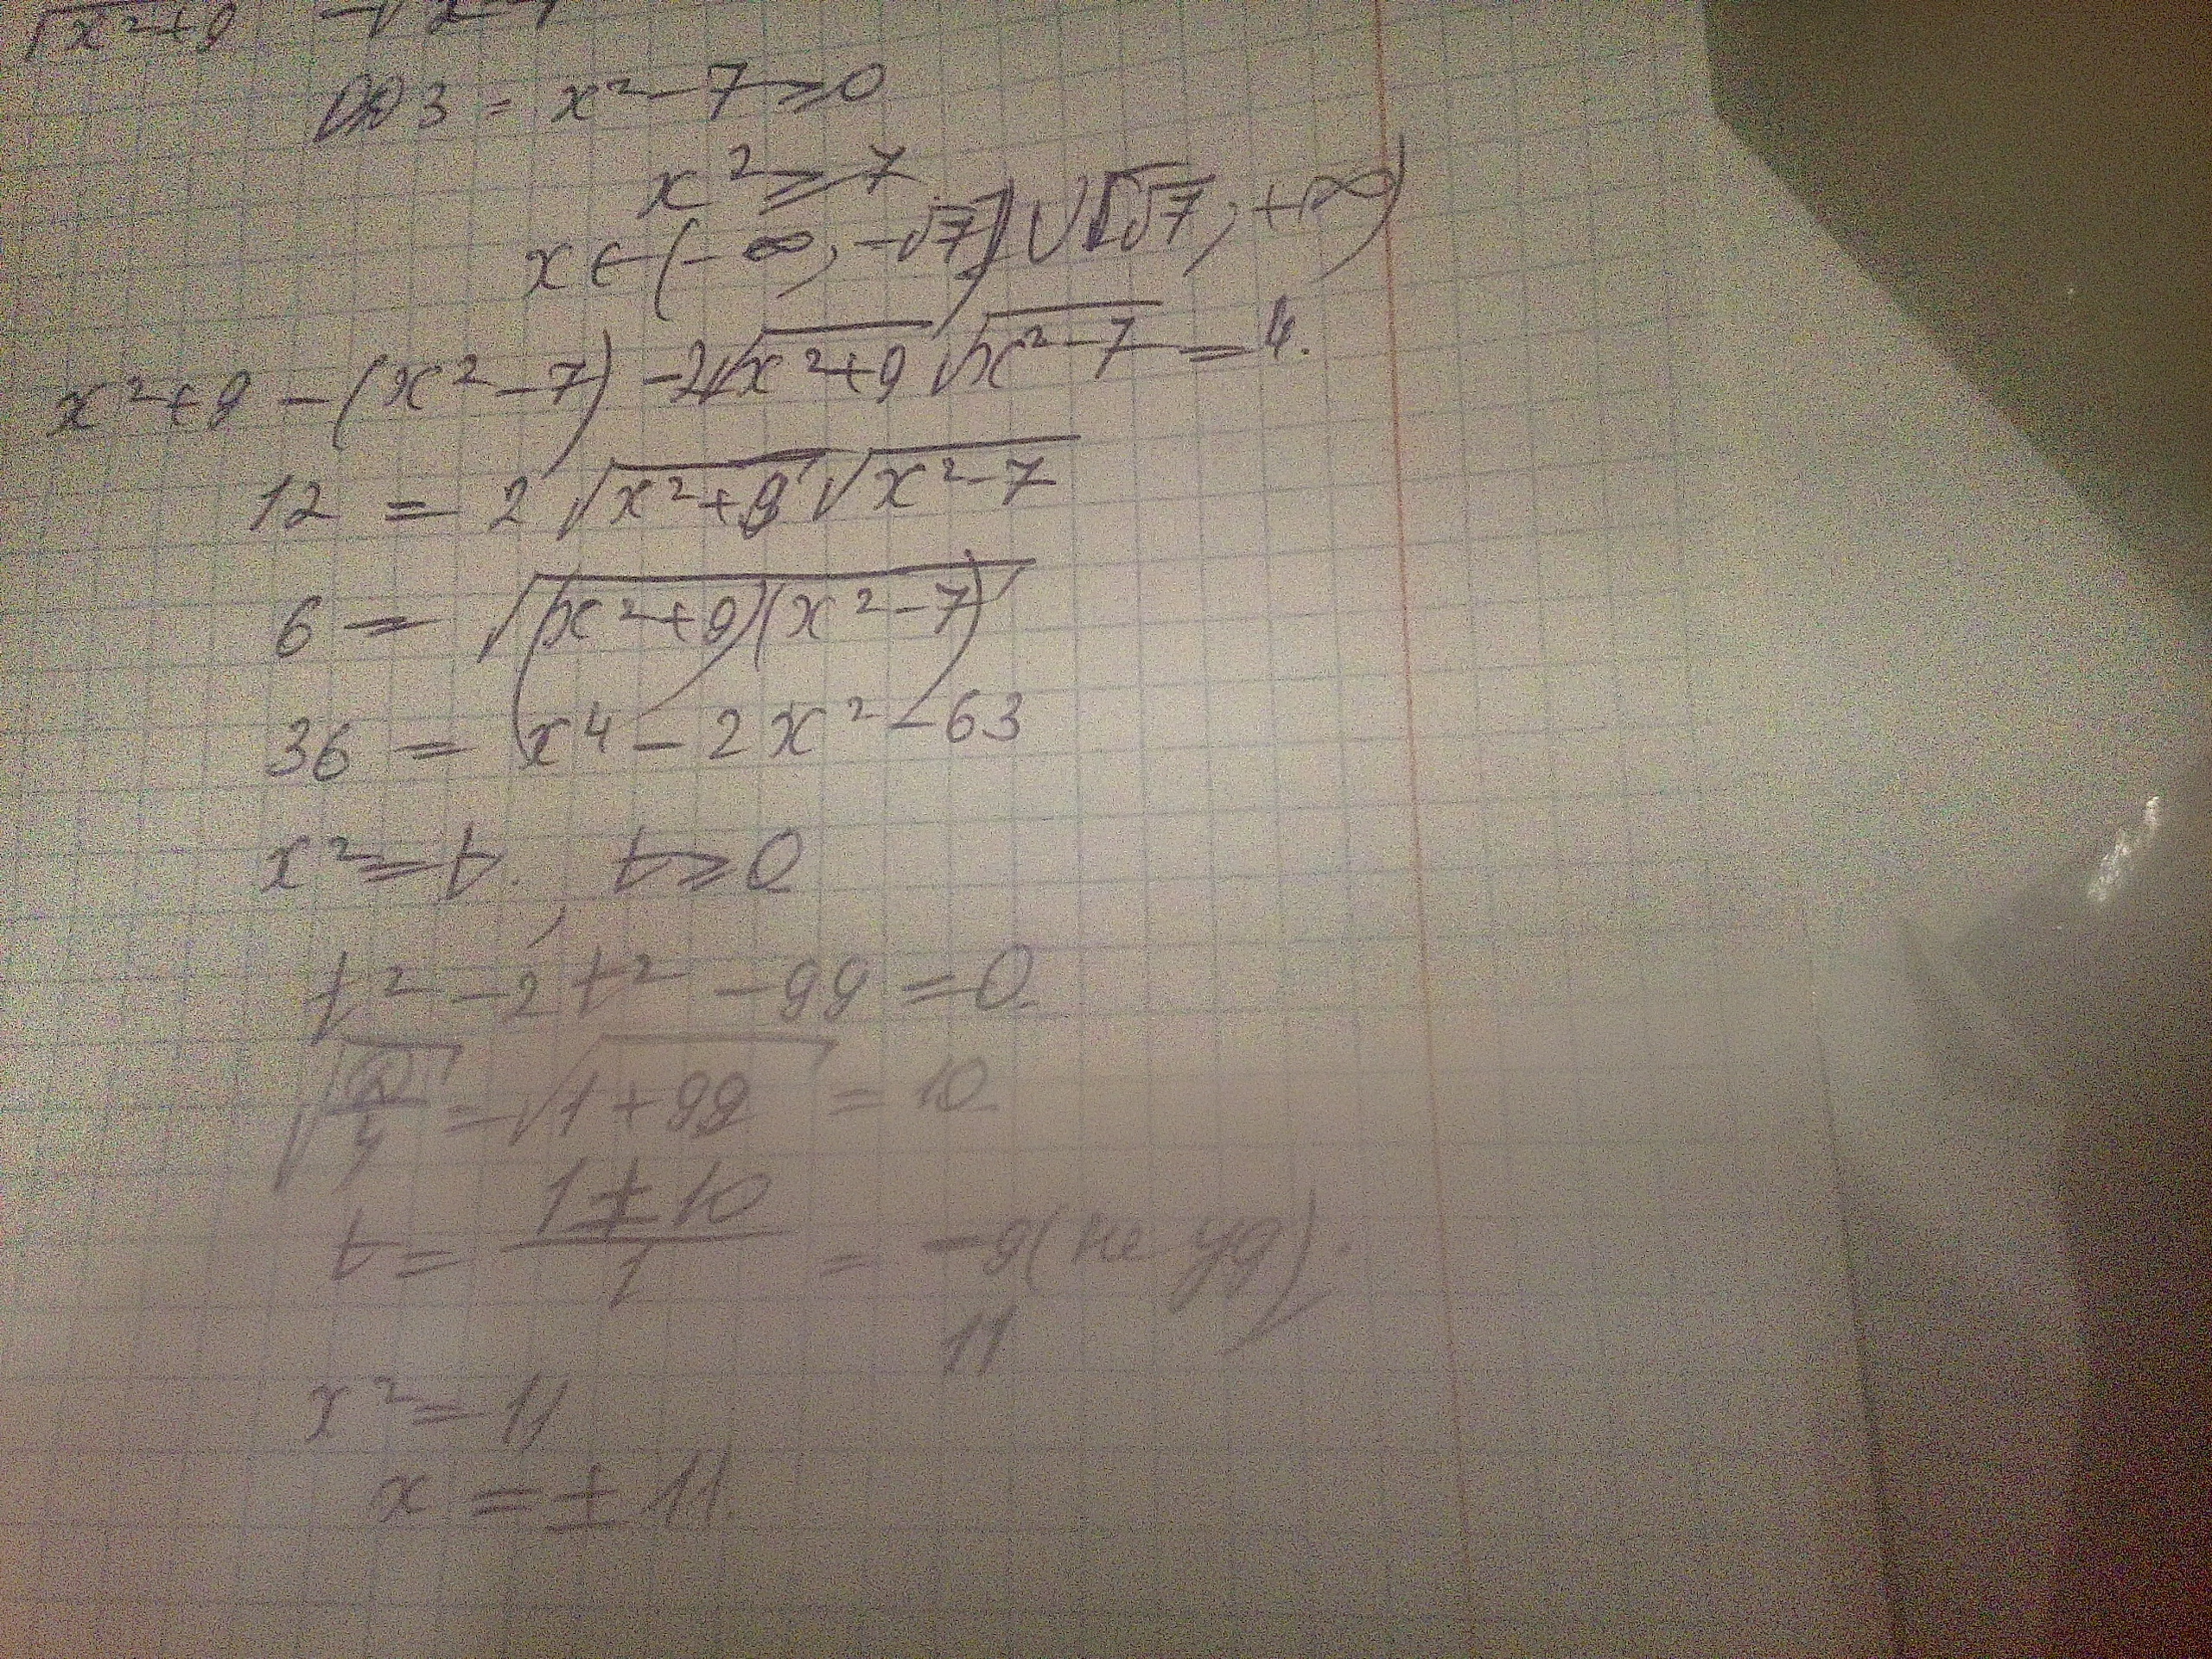 √x²+9 - √x²-7
ОДЗ = x² - 7 ≥ 0
x² ≥ 7
x ∈ (-∞; -√7] ∪ [√7; +∞)
x²+9 - (x²-7) - 2√x²+9 √x²-7 = 4.
12 = 2 √x²+9 √x²-7
6 = √(x²+9)(x²-7)
36 = x⁴ - 2x² - 63
x² = t. t ≥ 0
t² - 2t² - 99 = 0
√D/4 = √1+99 = 10
t = 1±10/1 = -9 (не уд).
11
x² = 11
x = ± 11.